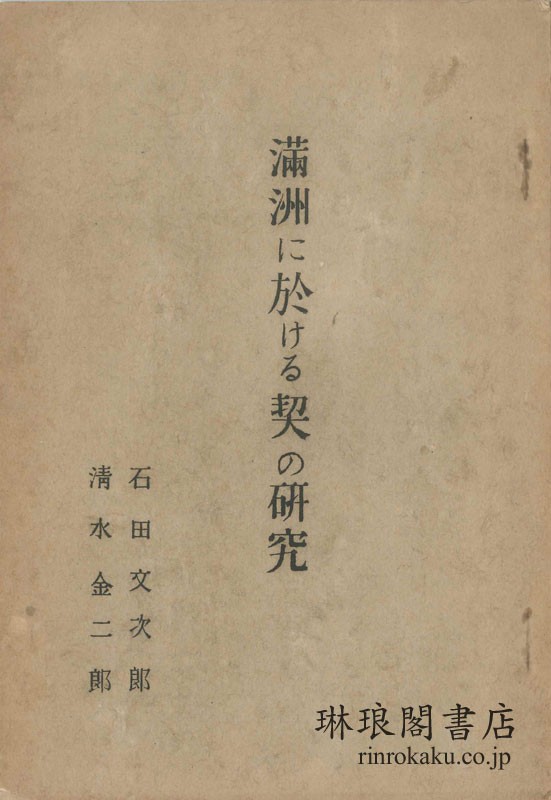 滿洲に於ける契の硏究
石田文次郞
淸水金二郞
琳琅閣書店
rinrokaku.co.jp